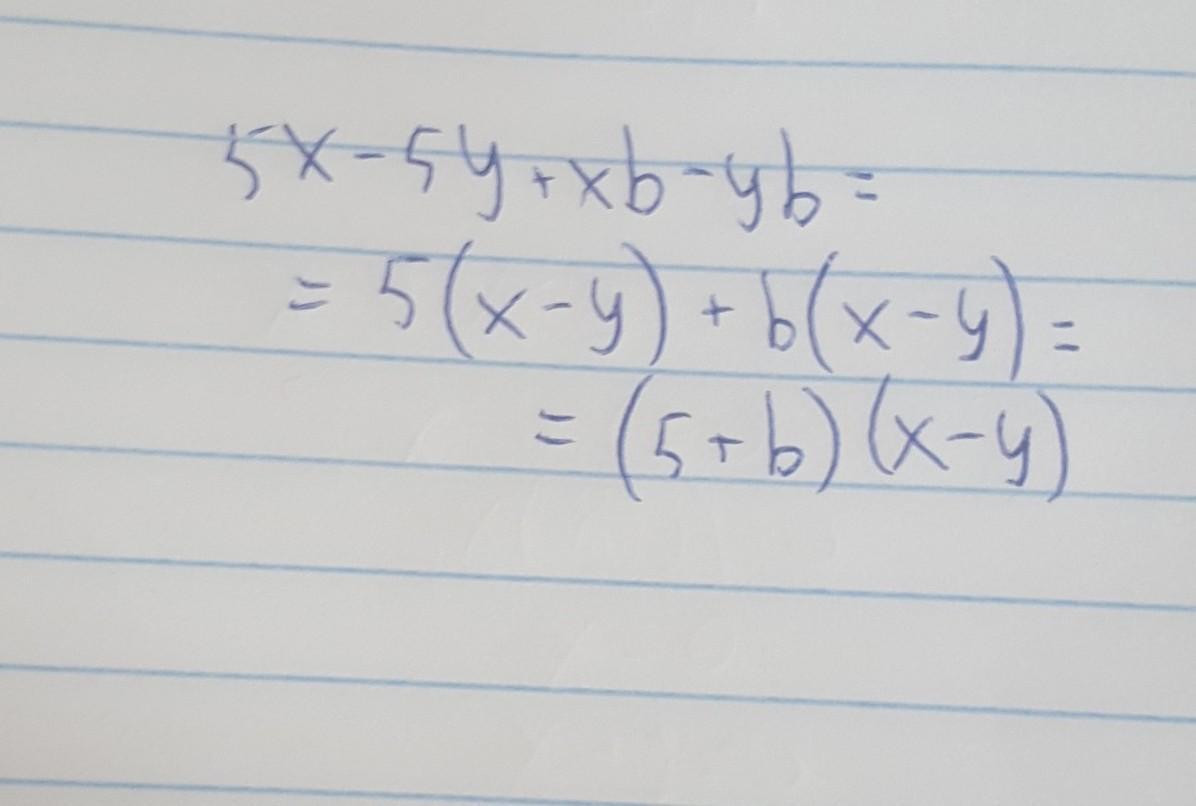 5x-5y+xb-yb=
=5(x-y)+b(x-y)=
=(5+b)(x-y)